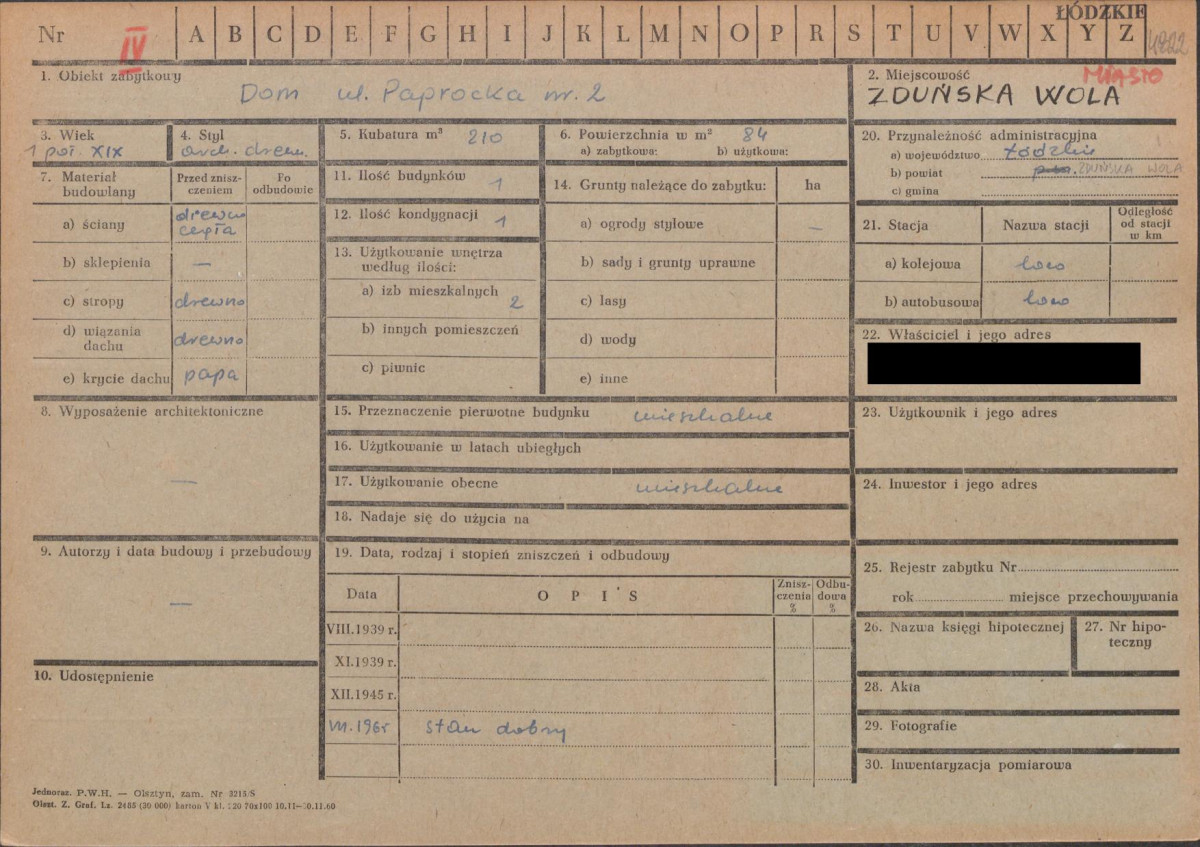 ŁÓDZKIE
Nr IV A B C D E F G H I J K L M N O P R S T U V W X Y Z 4822
1. Obiekt zabytkowy
Dom ul. Paprocka nr. 2
2. Miejscowość MIASTO
ZDUŃSKA WOLA
3. Wiek
1 poł. XIX
4. Styl
arch. drewn.
5. Kubatura m³ 210
6. Powierzchnia w m² 84
a) zabytkowa: b) użytkowa:
7. Materiał budowlany
Przed zniszczeniem
Po odbudowie
a) ściany drewno cegła
b) sklepienia —
c) stropy drewno
d) wiązania dachu drewno
e) krycie dachu papa
8. Wyposażenie architektoniczne
—
9. Autorzy i data budowy i przebudowy
—
10. Udostępnienie
11. Ilość budynków 1
12. Ilość kondygnacji 1
13. Użytkowanie wnętrza
według ilości:
a) izb mieszkalnych 2
b) innych pomieszczeń
c) piwnic
14. Grunty należące do zabytku: ha
a) ogrody stylowe —
b) sady i grunty uprawne
c) lasy
d) wody
e) inne
15. Przeznaczenie pierwotne budynku mieszkalne
16. Użytkowanie w latach ubiegłych
17. Użytkowanie obecne mieszkalne
18. Nadaje się do użycia na
19. Data, rodzaj i stopień zniszczeń i odbudowy
Data OPIS Zniszczenia % Odbudowa %
VIII.1939 r.
XI.1939 r.
XII.1945 r.
stan dobry
20. Przynależność administracyjna
a) województwo Łódzkie
b) powiat ZDUŃSKA WOLA
c) gmina
21. Stacja Nazwa stacji Odległość od stacji w km
a) kolejowa loco
b) autobusowa loco
22. Właściciel i jego adres
23. Użytkownik i jego adres
24. Inwestor i jego adres
25. Rejestr zabytku Nr
rok miejsce przechowywania
26. Nazwa księgi hipotecznej
27. Nr hipoteczny
28. Akta
29. Fotografie
30. Inwentaryzacja pomiarowa
Jednoraz. P.W.H. — Olsztyn, zam. Nr 3215/S